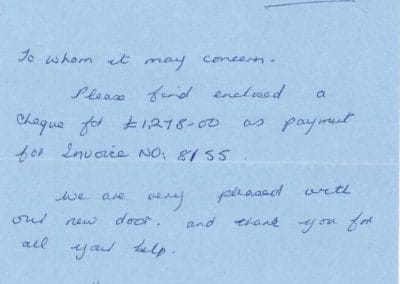 To whom it may concern.
Please find enclosed a
cheque for £1,278-00 as payment
for Invoice NO: 8155.
We are very pleased with
our new door. and thank you for
all your help.